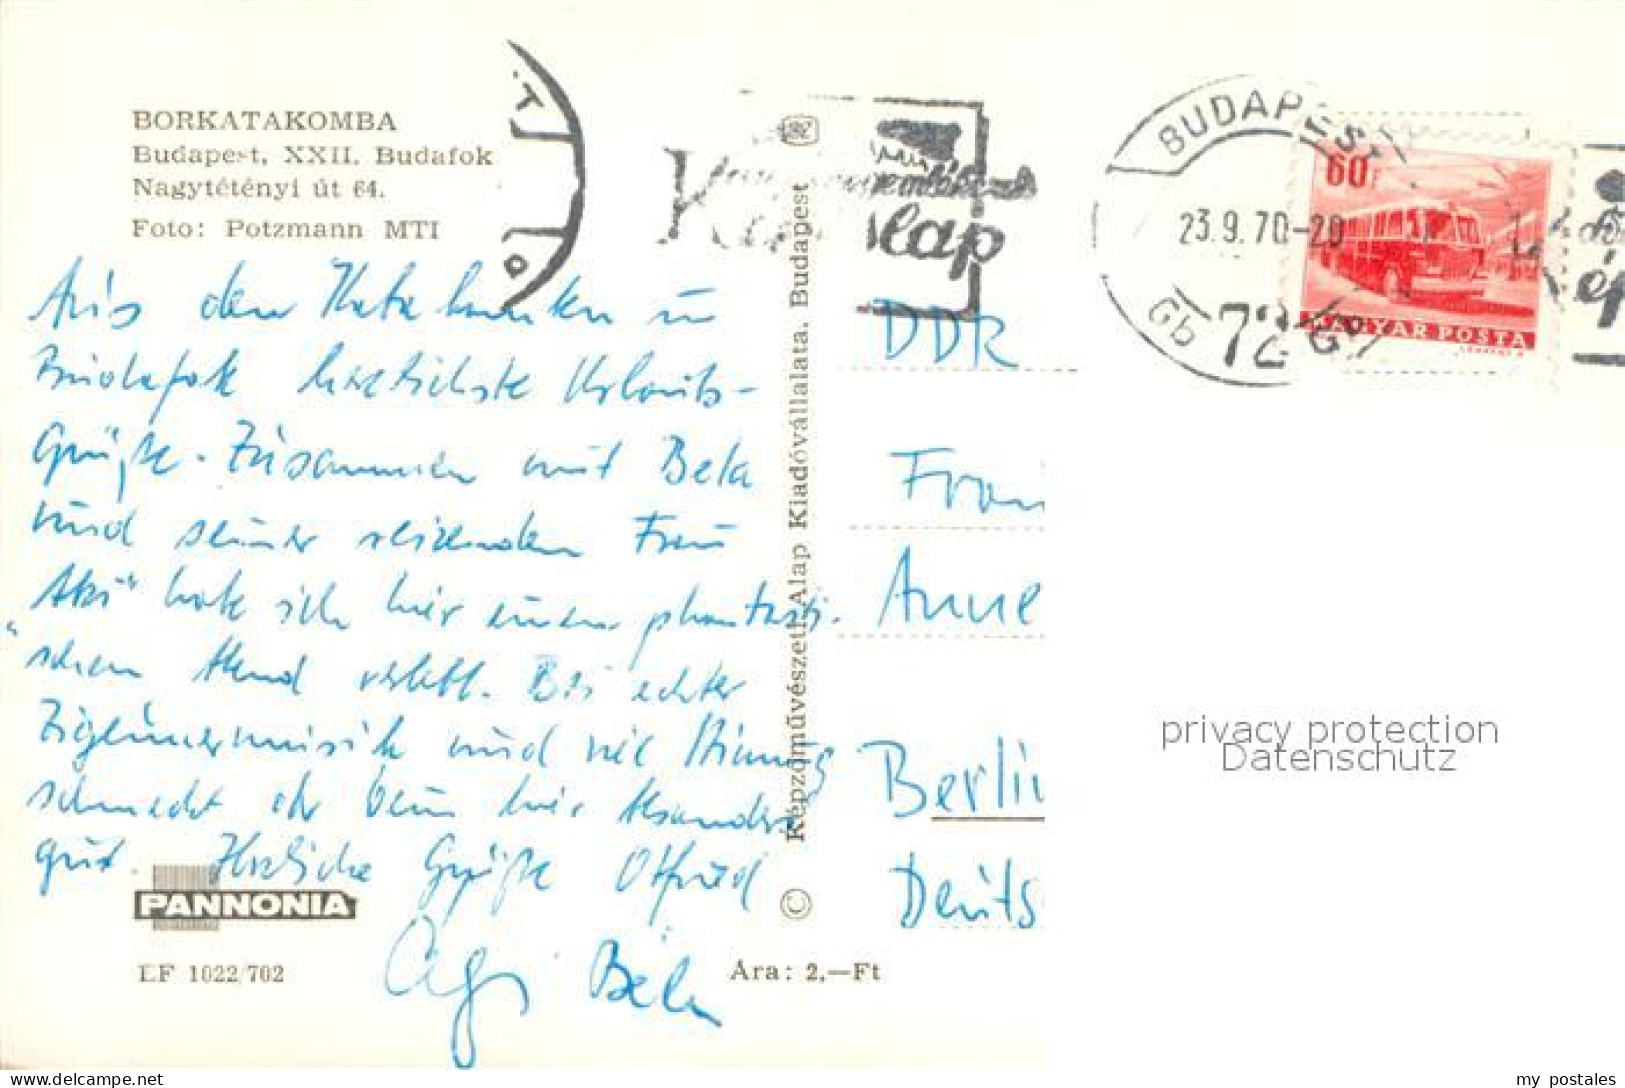 BORKATAKOMBA
Budapest, XXII. Budafok
Nagytétényi út 64.
Foto: Potzmann MTI
Aus den Katakomben in
Budafok herzlichste Urlaubs-
Grüße. Zusammen mit Bela
und seiner reizenden Frau
"Agi" habe ich hier einen phantasti-
schen Abend verlebt. Bei echter
Zigeunermusik und viel Stimmung
schmeckt der Wein hier besonders
gut. Herzliche Grüße Otfried
Agi Béla
PANNONIA
EF 1022/702
Ára: 2,—Ft
© Képzőművészeti Alap Kiadóvállalata, Budapest
lap
BUDAPEST
23.9.70-20
72
60f
MAGYAR POSTA
DDR
Frau
Anne
Berlin
Deuts
privacy protection
Datenschutz
PicClick exclusive
my_postales